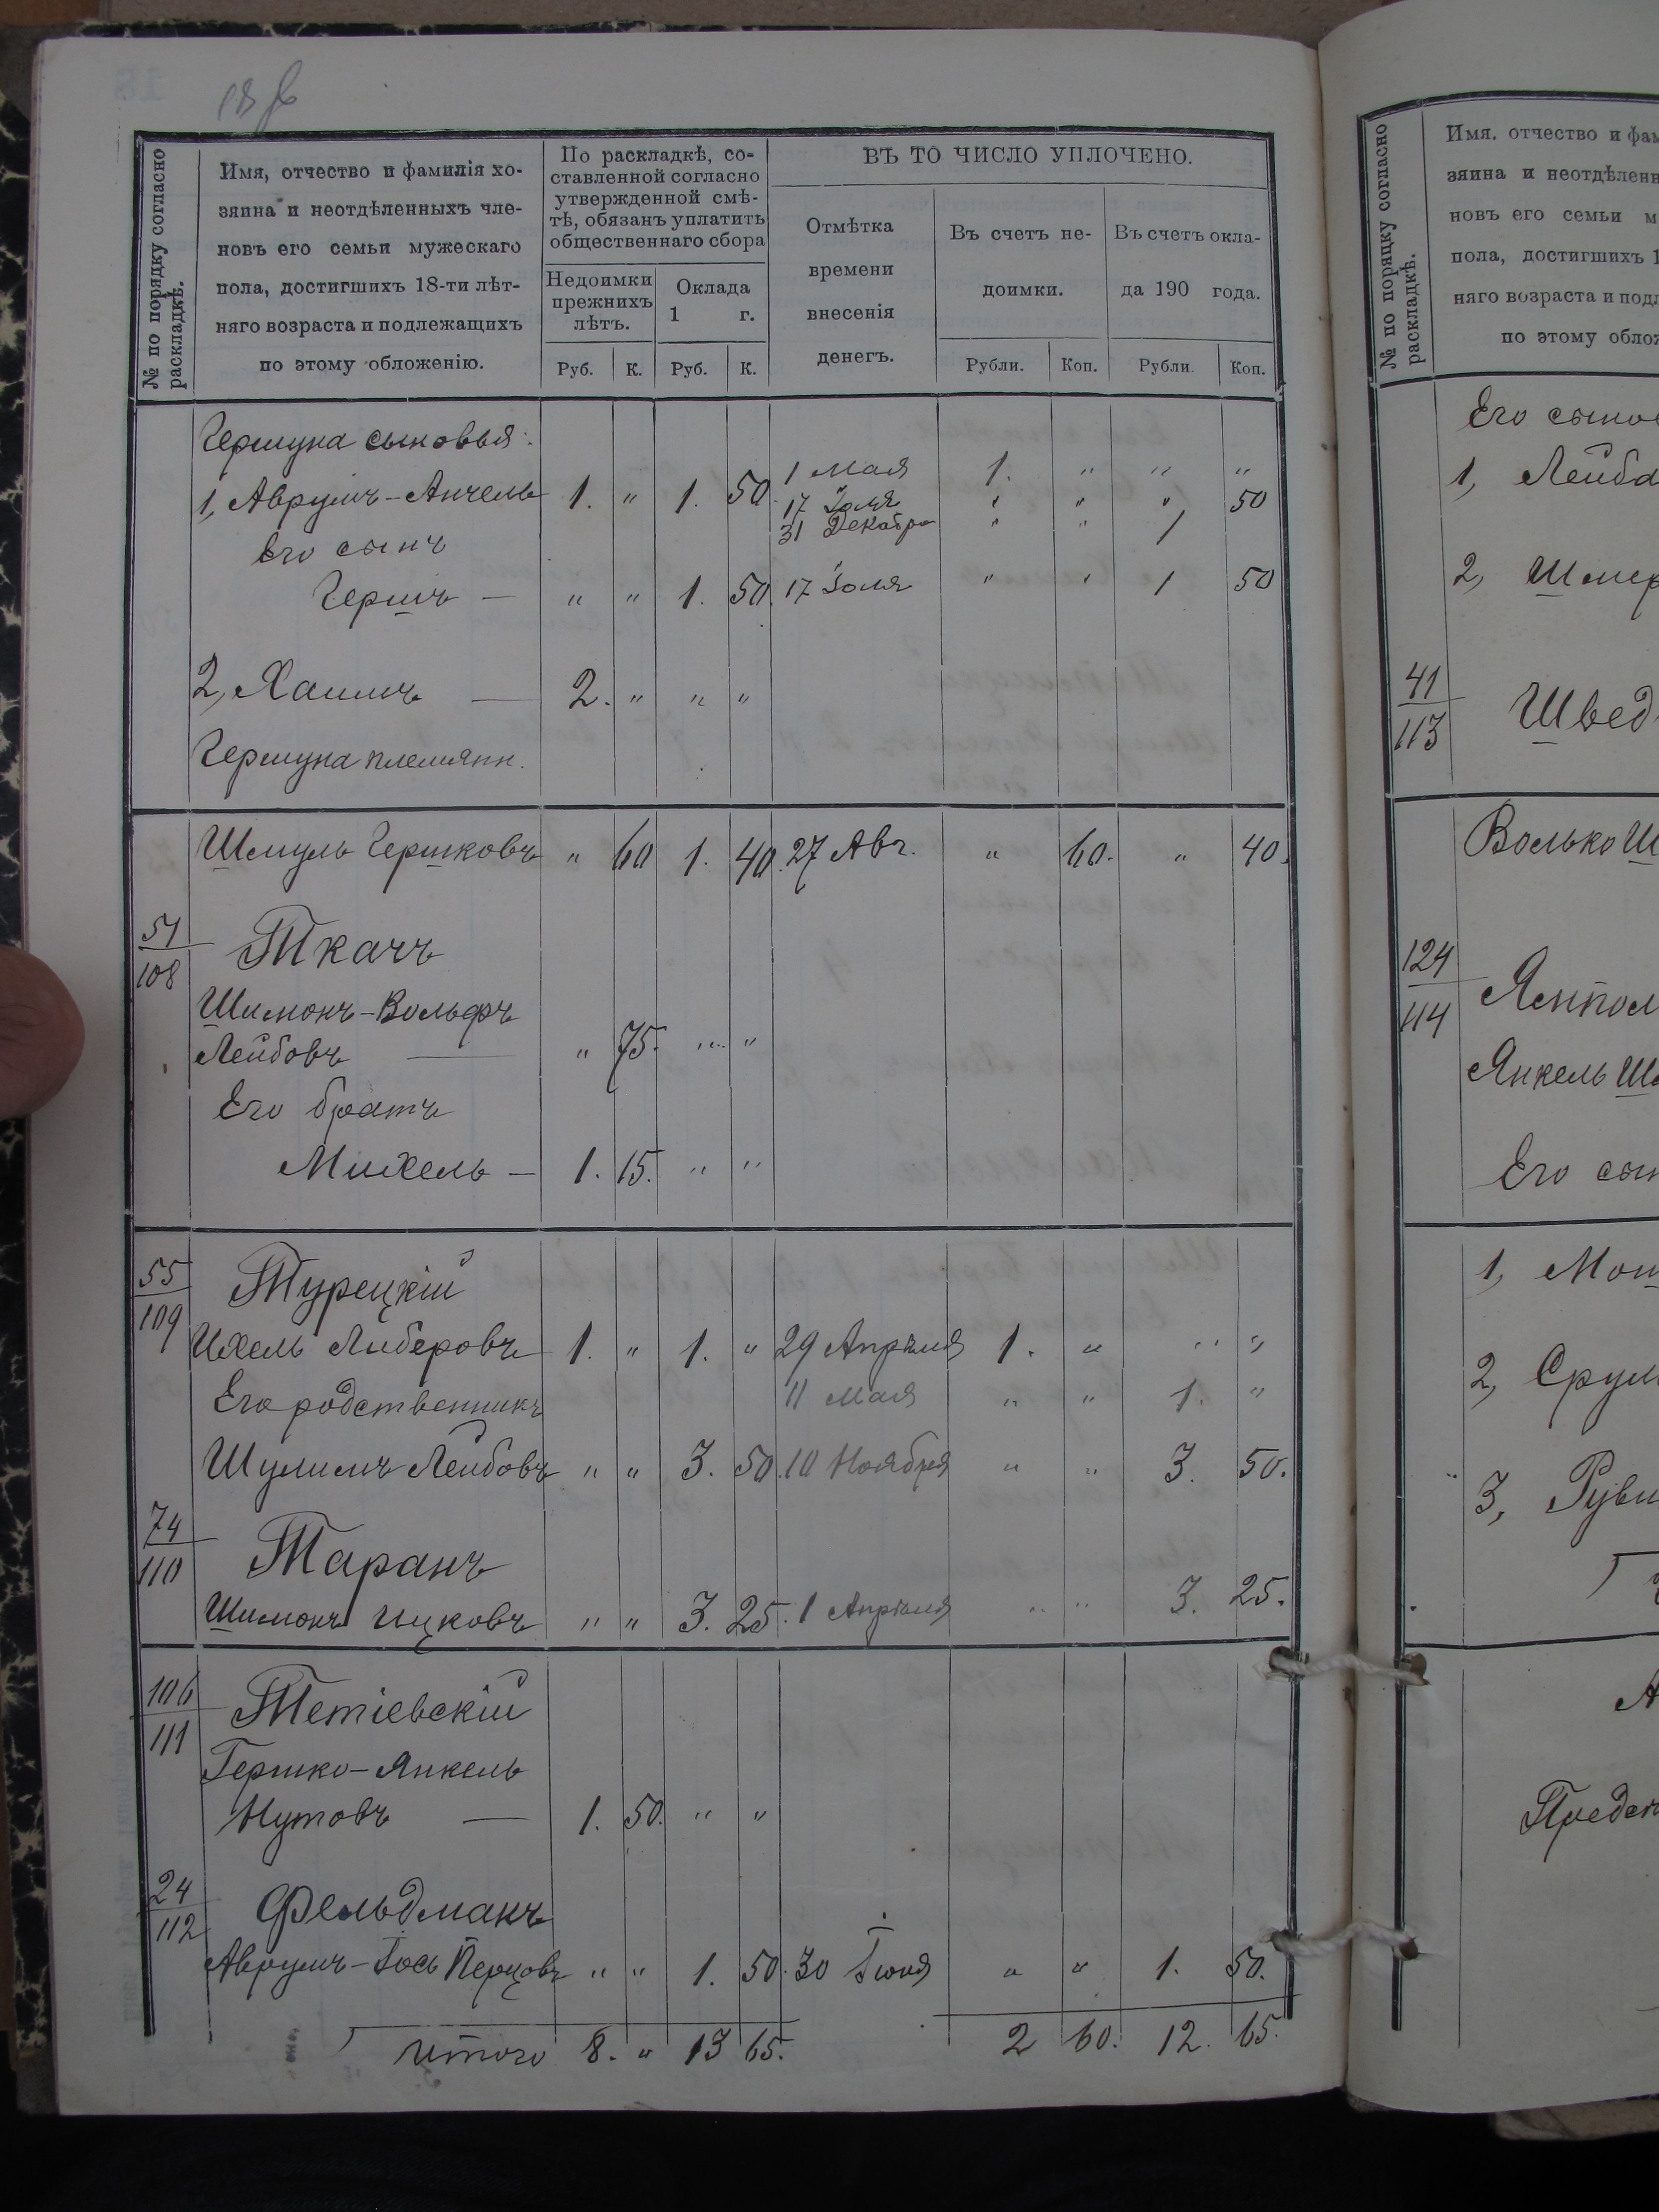 № по порядку согласно раскладкѣ.
Имя, отчество и фамилія хо-
зяина и неотдѣленныхъ чле-
новъ его семьи мужескаго
пола, достигшихъ 18-ти лѣт-
няго возраста и подлежащихъ
по этому обложенію.
По раскладкѣ, со-
ставленной согласно
утвержденной смѣ-
тѣ, обязанъ уплатить
общественнаго сбора
Недоимки
прежнихъ
лѣтъ.
Оклада
1 г.
Руб. К. Руб. К.
ВЪ ТО ЧИСЛО УПЛОЧЕНО.
Отмѣтка
времени
внесенія
денегъ.
Въ счетъ не-
доимки.
Въ счетъ окла-
да 190 года.
Рубли. Коп. Рубли. Коп.
Гершуна сыновья:
1 Мая 1. " " "
1, Аврумъ-Анчель 1. " 1. 50. 17 Іюля " " " 50
31 Декабря " " 1
Его сынъ
Гершъ — " " 1. 50. 17 Іюля " " 1 50
2, Хаимъ — 2. " " "
Гершуна племянн.
Шмуль Гершковъ " 60 1. 40. 27 Авг. " 60. " 40.
51
108
Ткачъ
Шимонъ-Вольфъ
Лейбовъ — " 75. " "
Его братъ
Михель — 1. 15. " "
55
109
Турецкій
Ихель Либеровъ 1. " 1. " 29 Апрѣля 1. " " "
Его родственникъ 11 Мая " " 1. "
Шулимъ Лейбовъ " " 3. 50. 10 Ноября " " 3. 50.
74
110
Таранъ
Шимонъ Ицковъ " " 3. 25. 1 Апрѣля " " 3. 25.
106
111
Тетіевскій
Гершко-Янкель
Нутовъ — 1. 50. " "
24
112
Фельдманъ
Аврумъ-Іось Перцовъ " " 1. 50. 30 Іюня " " 1. 50.
Итого 8. " 13 65. 2 60. 12. 65.
№ по порядку согласно раскладкѣ.
Имя. отчество и фам
зяина и неотдѣленн
новъ его семьи м
пола, достигшихъ 1
няго возраста и подл
по этому облож
Его сынов
1, Лейба
2, Шмер
41
113
Швед
Волько Ш
124
114
Ямпол
Янкель Ш
Его сын
1, Мош
2, Срул
3, Руви